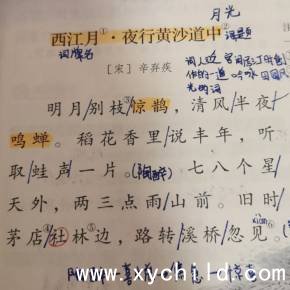 月光
西江月①·夜行黄沙道中②
词牌名
词题
[宋]辛弃疾
明月/别枝/惊鹊，清风/半夜/
鸣蝉。稻花香里/说丰年，听
取/蛙声/一片。(陶醉)七八个星/
天外，两三点雨/山前。旧时/
茅店/社林边，路转/溪桥/忽见。
xiàn
www.xychild.com